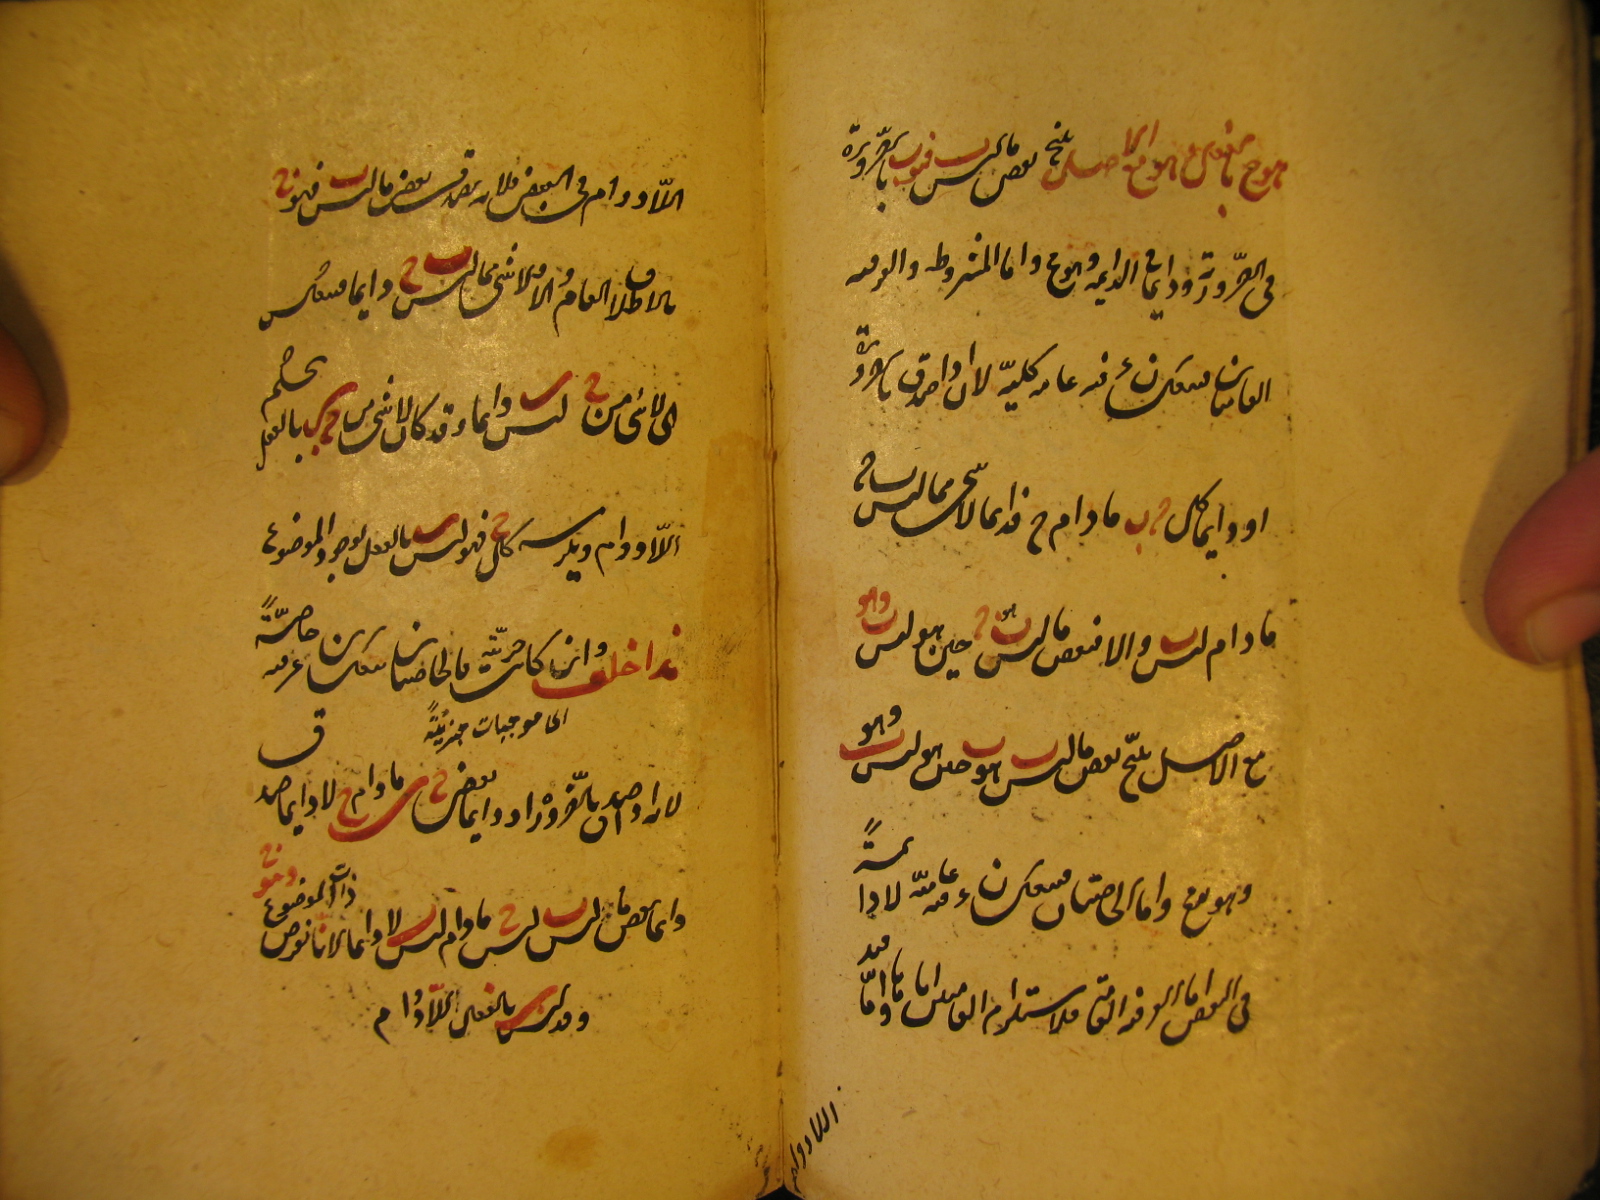 هو ج بالفعل وهو مع الاصل ينتج بعض ما ليس ب فهو ب بالضرورة
في الضرورة ودائما في الدائمة وهو مح واما المشروطة والعرفية
العامتان فتنعكسان عرفية عامة كلية لانه اذا صدق بالضرورة
او دائما كل ج ب ما دام ج فدائما لا شئ مما ليس ب ج
ما دام ليس ب والا فبعض ما ليس ب هو ج حين هو ليس ب وهو
مع الاصل ينتج بعض ما ليس ب هو ب حين هو ليس ب وهو
وهو مح واما الخاصتان فتنعكسان عرفية عامة لا دائمةً
في البعض اما العرفية العامة فلاستلزام العامتين اياها واما قيد
اللادوام
اللادوام في البعض فلانه يصدق بعض ما ليس ب فهو ج
بالاطلاق العام والا فلا شئ مما ليس ب ج دائما فتنعكس
الى لا شئ من ج ليس ب دائما وقد كان لا شئ من ج ب بالفعل بحكم
اللادوام ويلزمه كل ج فهو ليس ب بالفعل لوجود الموضوع
هذا خلف وان كانت جزئية فالخاصتان تنعكسان عرفية خاصةً
الى موجبات جزئيةً
لانه اذا صدق بالضرورة او دائما بعض ج ب ما دام ج لا دائما صدق
دائما بعض ما ليس ب ليس ج ما دام ليس ب لا دائما لانا نفرض ذات الموضوع وهو ج
د فد ليس ب بالفعل اللادوام